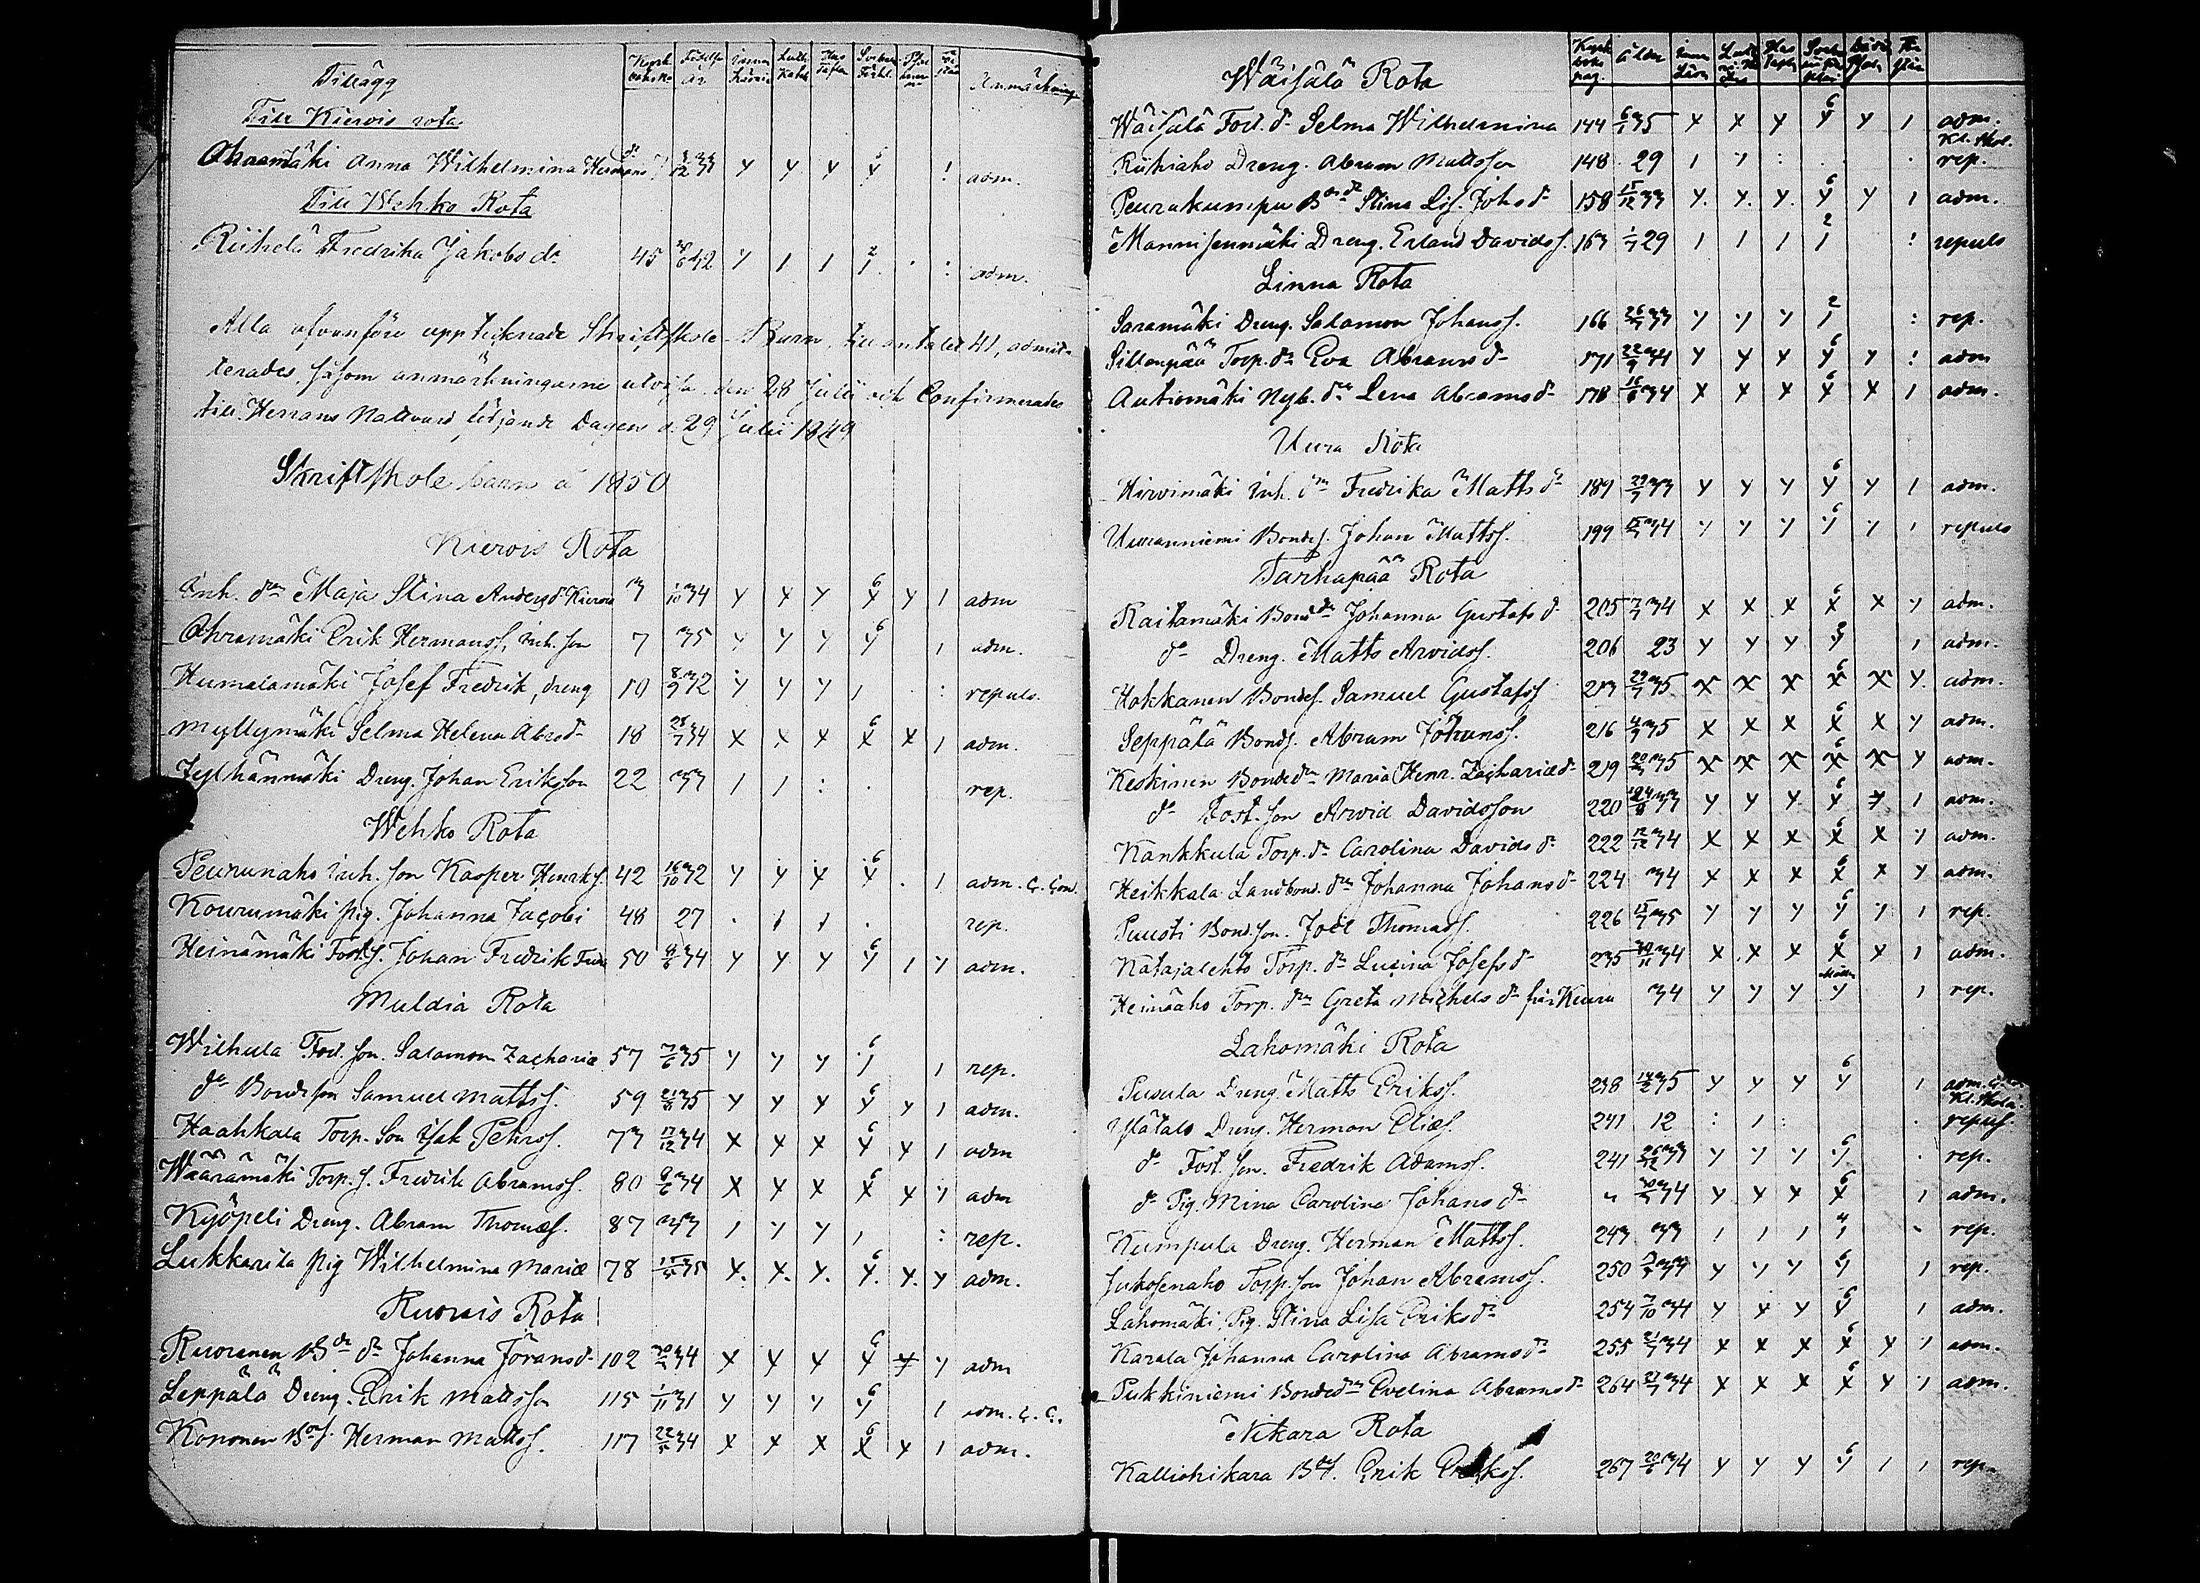 Tillägg
Till Kierois rota
Ahraamäki Anna Wilhelmina Hermans dr 7 8/12 33 adm.
Till Wehko Rota
Riihelä Fredrika Jakobs dr 45 32 adm.
Alla ofvanföre upptecknade Skriftskole-Barn, till antalet 41, admit-
terades, såsom anmärkningarne utvisa den 28 Julii och Confirmerades
till Herrans Nattvard följande Dagen d. 29 Julii 1849
Skriftskole barn år 1850
Kierois Rota
Inh. dr Maja Stina Andersd. Kierois 3 1/10 34 6 adm
Ahramäki Erik Hermanss, inh. son 7 35 6 adm.
Humalamäki Josef Fredrik, dreng 10 8/9 32 repuls.
Myllymäki Selma Helena Abrsdr 18 28/7 34 6 adm.
Jylhänmäki Dreng. Johan Eriksson 22 33 rep.
Wehko Rota
Peurunaho inh. son Kasper Henriks. 42 16/10 32 6 adm. C. Con.
Kourumäki pig. Johanna Jacobi 48 27 rep.
Heinämäki Fost.s. Johan Fredrik Fredr 50 9/6 34 6 adm.
Muldia Rota
Wilhula Fod. son. Salamon Zachariæ 57 7/6 35 6 rep.
do Bondeson Samuel Mattss. 59 35 6 adm.
Haahkala Torp. Son Isak Pehrss. 73 17/12 34 6 adm
Wäärämäki Torp. s. Fredrik Abramss. 80 9/6 34 6 adm
Kyöpeli Dreng. Abram Thomæs. 87 33 rep.
Lukkarila pig Wilhelmina Mariæ 78 35 6 adm.
Ruovais Rota
Ruoranen Bde dr Johanna Göransdr 102 34 6 adm
Leppälä Dreng. Erik Mattsson 115 1/11 31 6 adm. C. C.
Kononen Bdes. Herman Mattss. 117 22/5 34 6 adm.
Wäisälä Rota
Wäisälä Fod. dr Selma Wilhelmina 144 6/1 35 6 adm.
Kl. Skol.
Riihiaho Dreng. Abram Mattsson 148 29 rep.
Peurakumpu Bde dr Stina Lis. Johs dr 158 15/12 33 6 adm.
Mannisenmäki Dreng. Erland Davidss. 163 1/7 29 2 repuls
Linna Rota
Saramäki Dreng. Salamon Johanss. 166 33 2 rep.
Sillanpää Torp. dr Eva Abrams dr 171 22/9 34 6 adm
Autiomäki Nyb. dr Lena Abrams dr 178 16/6 34 6 adm.
Uura Rota
Hirvimäki inh. dr Fredrika Matts dr 189 29/7 33 6 adm.
Uuranniemi Bondes. Johan Mattss. 199 34 6 repuls
Tarhapää Rota
Raitamäki Bondedr Johanna Gustafs dr 205 7/7 34 6 adm.
do Dreng. Matts Arvidss. 206 23 adm.
Hokkanen Bondes. Samuel Gustafss 213 29/7 35 6 adm.
Seppälä Bonds. Abram Johanss. 216 35 6 adm.
Keskinen Bondedr Maria Henr. Zachariæ dr 219 35 6 adm.
do Fost. son Arvid Davidsson 220 33 6 adm.
Kankkula Torp. dr Carolina Davids dr 222 12/12 34 6 adm.
Heikkala Landbond. dr Johanna Johans dr 224 34 6 adm.
Puusti Bond. son. Joel Thomass. 226 15/7 35 6 rep.
Natajalehto Torp. dr Lusina Josefs dr 235 34 6 adm.
Heinäaho Torp. dr Greta Michels dr från Keuru 34 rep.
Lahomäki Rota
Pusula Dreng. Matts Erikss. 238 14/2 35 6 adm.
Kl. Skola.
Ylätalo Dreng. Herman Eliæs. 241 12 repuls.
do Fost. son. Fredrik Adamss. 241 26/12 33 6 rep.
do Pig. Mina Carolina Johans dr 34 6 adm.
Kumpula Dreng. Herman Mattss. 243 33 4 rep.
Jukosenaho Torp. son Johan Abramss. 250 6 rep.
Lahomäki Pig. Stina Lisa Eriks dr 254 7/10 34 6 adm.
Karala Johanna Carolina Abrams dr 255 21/7 34 6 adm.
Pukkiniemi Bondedr Evelina Abrams dr 264 34 6 adm.
Nikara Rota
Kalliohikara Bdes. Erik Erikss. 267 20/6 34 6 rep.